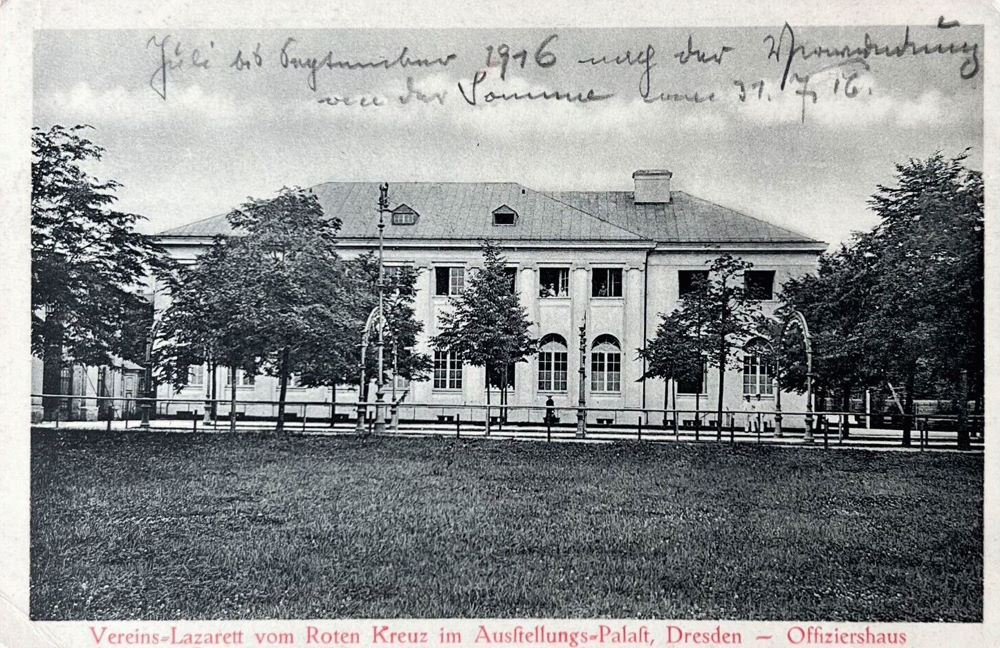 Juli bis September 1916 nach der Verwundung
an der Somme vom 31.7.16.
Vereins-Lazarett vom Roten Kreuz im Ausſtellungs-Palaſt, Dresden — Offiziershaus